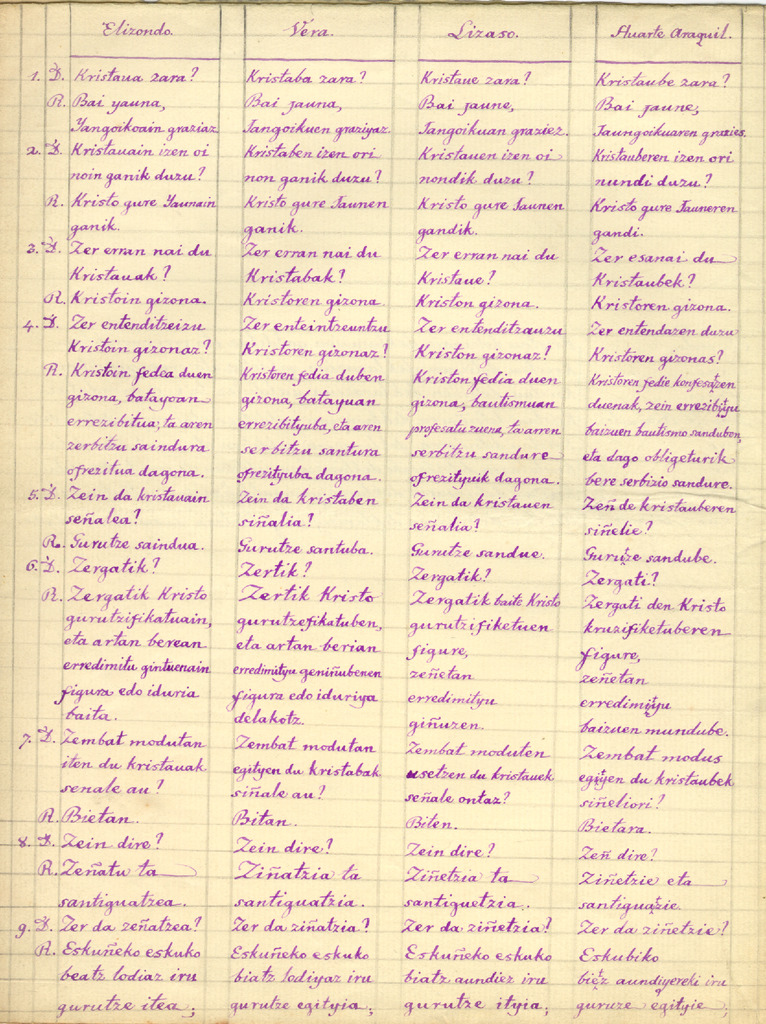 Elizondo.
1. D. Kristaua zara?
R. Bai yauna,
Yangoikoain graziaz
2. D. Kristauain izen oi
noin ganik duzu?
R. Kristo gure Yaunain
ganik.
3. D. Zer erran nai du
Kristauak?
R. Kristoin gizona.
4. D. Zer entenditzeizu
Kristoin gizonaz?
R. Kristoin fedea duen
gizona, batayoan
errezibitua, ta aren
zerbitzu saindura
ofrezitua dagona.
5. D. Zein da kristauain
señalea?
R. Gurutze saindua.
6. D. Zergatik?
R. Zergatik Kristo
gurutzifikatuain,
eta artan berean
erredimitu gintuenain
figura edo iduria
baita.
7. D. Zembat modutan
iten du kristauak
senale au?
R. Bietan.
8. D. Zein dire?
R. Zeñatu ta
santiguatzea.
9. D. Zer da zeñatzea?
R. Eskuñeko eskuko
beatz lodiaz iru
gurutze itea;
Vera.
Kristaba zara?
Bai jauna,
Jangoikuen graziyaz.
Kristaben izen ori
non ganik duzu?
Kristo gure Jaunen
ganik.
Zer erran nai du
Kristabak?
Kristoren gizona.
Zer enteintzeuntzu
Kristoren gizonaz?
Kristoren fedia duben
gizona, batayuan
errezibityuba, eta aren
serbitzu santura
ofrezityuba dagona.
Zein da kristaben
siñalia?
Gurutze santuba.
Zertik?
Zertik Kristo
gurutzefikatuben,
eta artan berian
erredimityu geniñubenen
figura edo iduriya
delakotz.
Zembat modutan
egityen du kristabak
siñale au?
Bitan.
Zein dire?
Ziñatzia ta
santiguatzia.
Zer da ziñatzia?
Eskuñeko eskuko
biatz lodiyaz iru
gurutze egityia;
Lizaso.
Kristaue zara?
Bai jaune,
Jangoikuan graziez.
Kristauen izen oi
nondik duzu?
Kristo gure Jaunen
gandik.
Zer erran nai du
Kristaue?
Kriston gizona.
Zer entenditzauzu
Kriston gizonaz?
Kriston fedia duen
gizona, bautismuan
profesatu zuena, ta arren
serbitzu sandure
ofrezityuik dagona.
Zein da kristauen
señalia?
Gurutze sandue.
Zergatik?
Zergatik baite Kristo
gurutzifiketuen
figure,
zeñetan
erredimityu
giñuzen.
Zembat moduten
usetzen du kristauek
señale ontaz?
Biten.
Zein dire?
Ziñetzia ta
santiguetzia.
Zer da ziñetzia?
Eskuñeko eskuko
biatz aundiez iru
gurutze ityia;
Huarte Araquil.
Kristaube zara?
Bai jaune;
Jaungoikuaren grazies.
Kristauberen izen ori
nundi duzu?
Kristo gure Jauneren
gandi.
Zer esanai du
Kristaubek?
Kristoren gizona.
Zer entendazen duzu
Kristoren gizonas?
Kristoren fedie konfesatzen
duenak, zein errezibityu
baizuen bautismo sanduben,
eta dago obligeturik
bere serbizio sandure.
Zeñ de kristauberen
siñelie?
Gurutze sandube.
Zergati?
Zergati den Kristo
kruzifiketuberen
figure,
zeñetan
erredimityu
baizuen mundube.
Zembat modus
egityen du kristaubek
siñeliori?
Bietara.
Zeñ dire?
Ziñetzie eta
santiguatzie.
Zer da ziñetzie?
Eskubiko
bietz aundiyereki iru
guruze egityie;